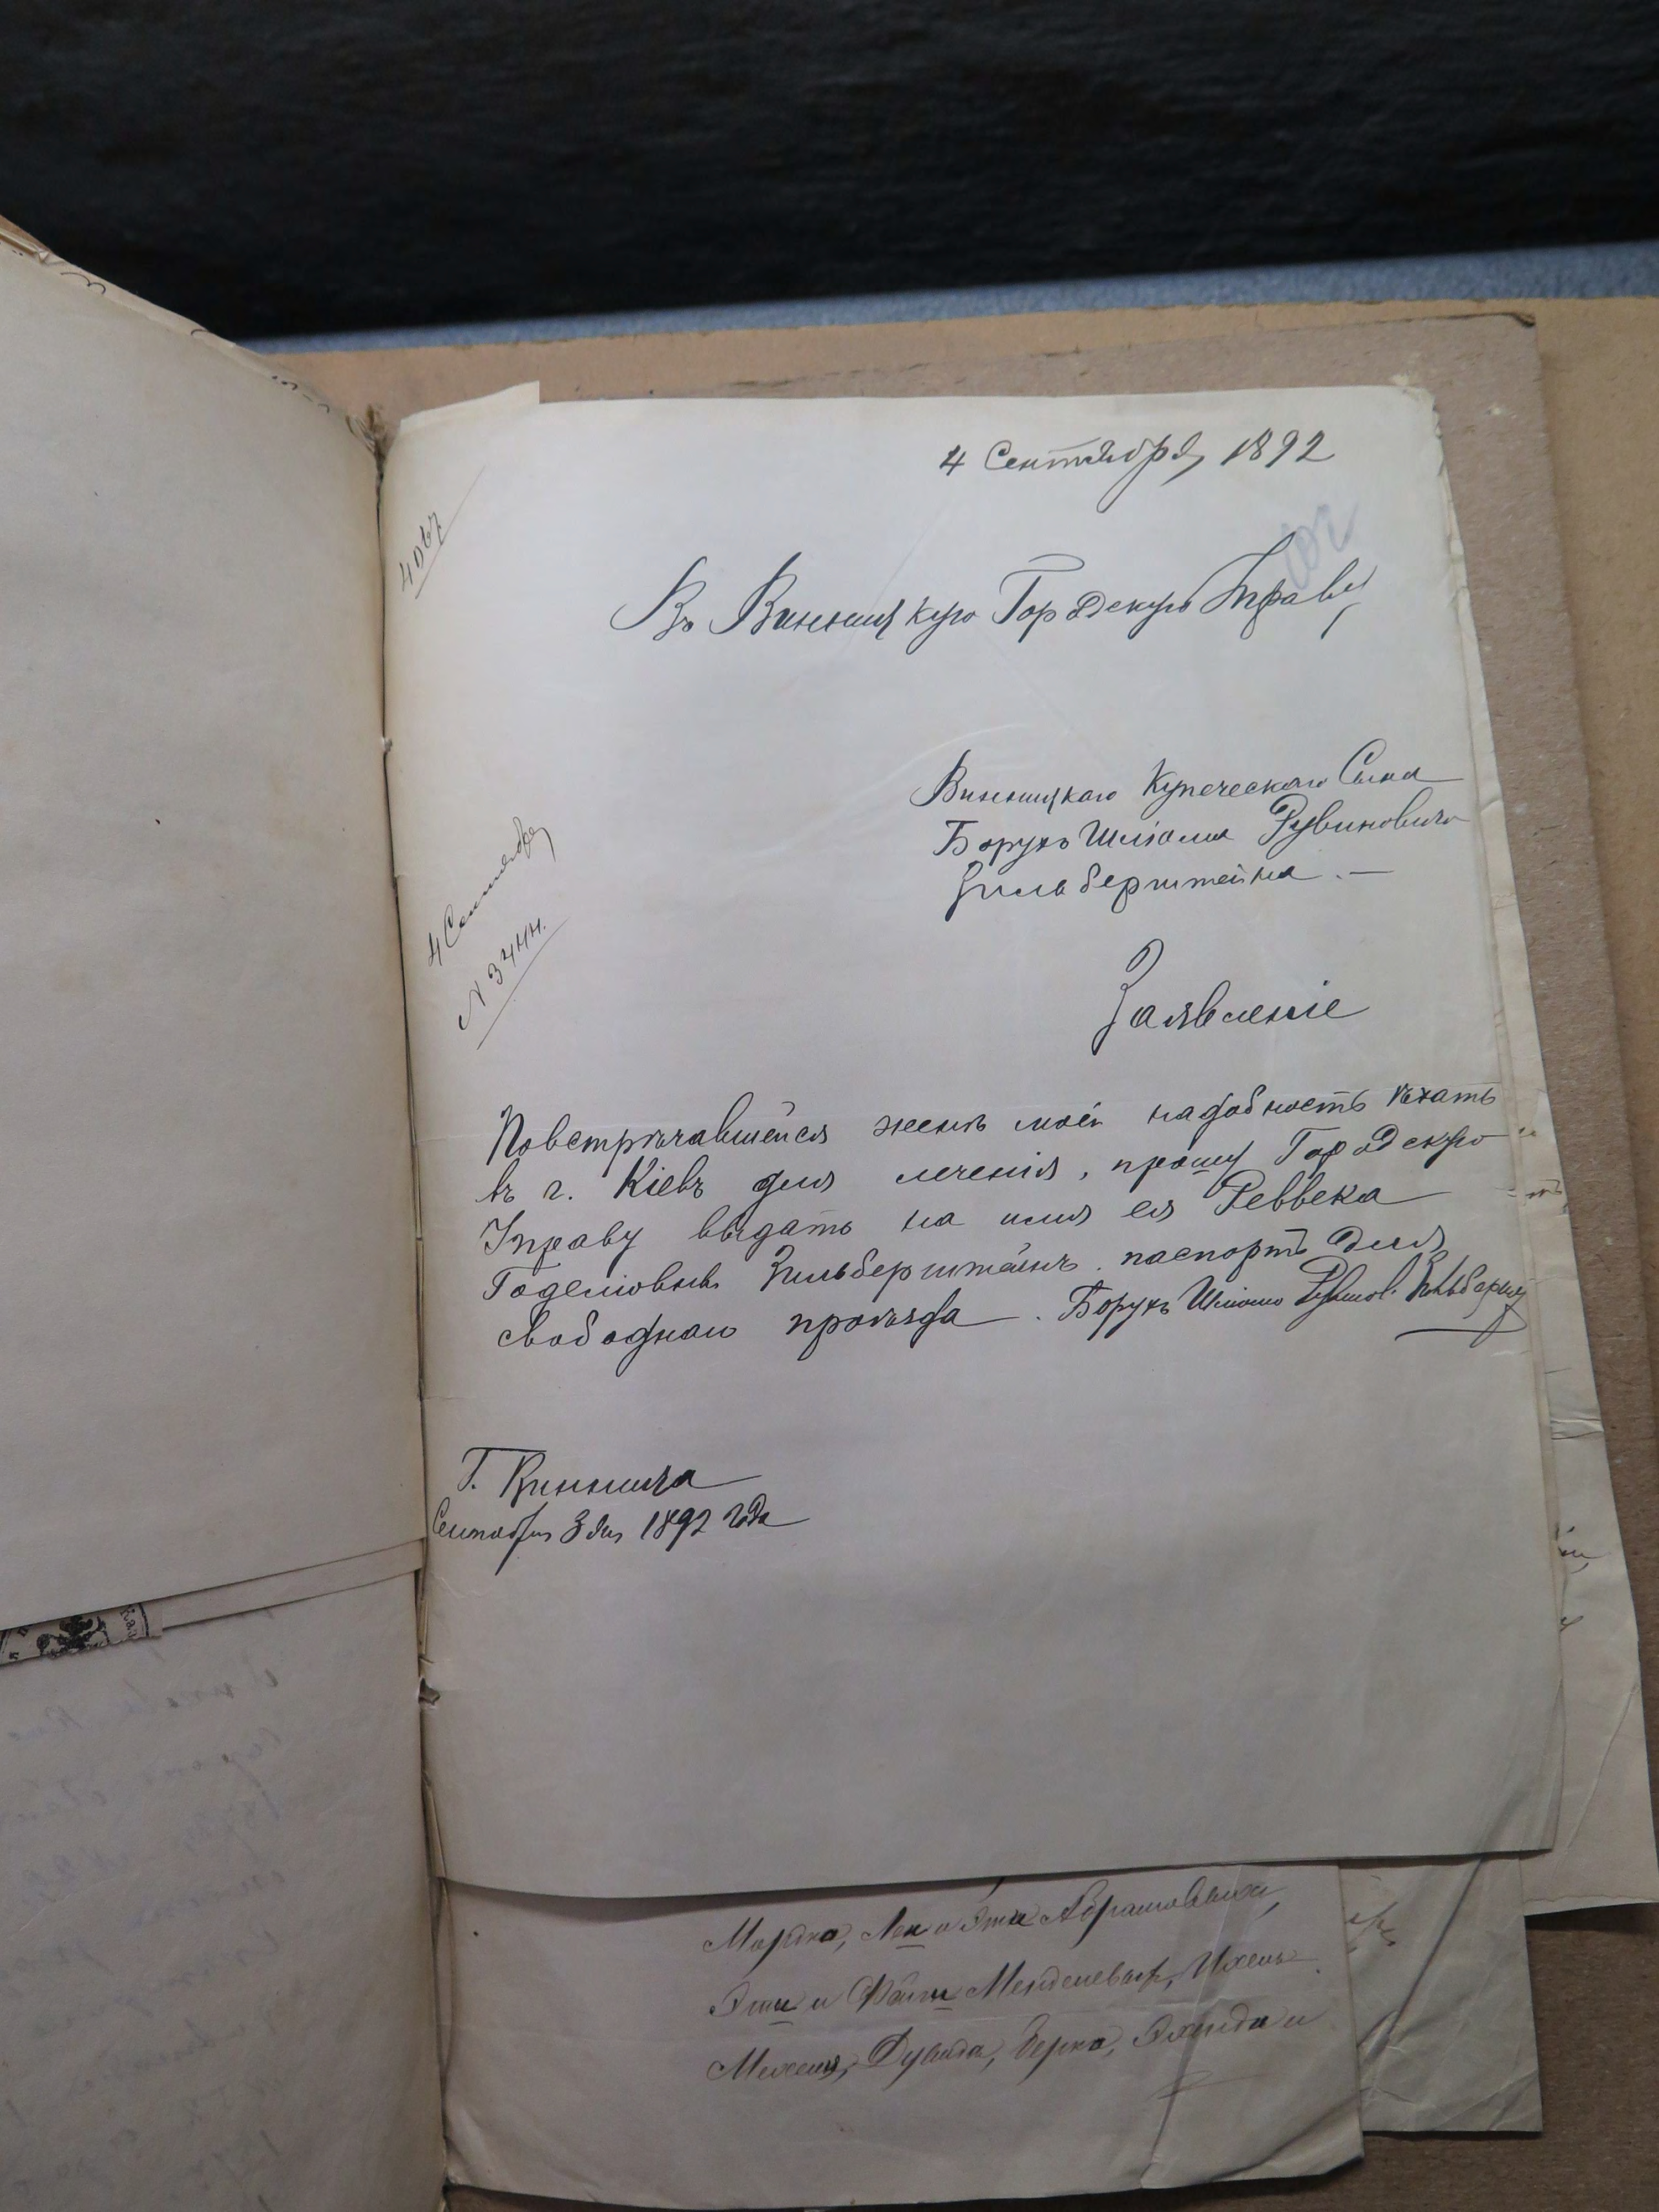 4 Сентября 1892
4067
Въ Винницкую Городскую Управу
Винницкаго Купеческаго Сына
Борухъ Шліома Рувиновича
Зильберштейна. —
4 Сентября
№ 3444.
Заявленіе
Повстрѣчавшейся женѣ моей надобность ѣхать
въ г. Кіевъ для леченія, прошу Городскую
Управу выдать на имя ея Реввека
Годелювнѣ Зильберштейнъ. паспортъ для
свободнаго проѣзда. Борухъ Шліомо Рувинов. Зильберш
Г. Винница
Сентября 3 дня 1892 года
Мордко, Леи и Эти Абрамовыхъ,
Эти и Фейги Менделевыхъ, Ихель
Мехеля, Дувида, Берко, и